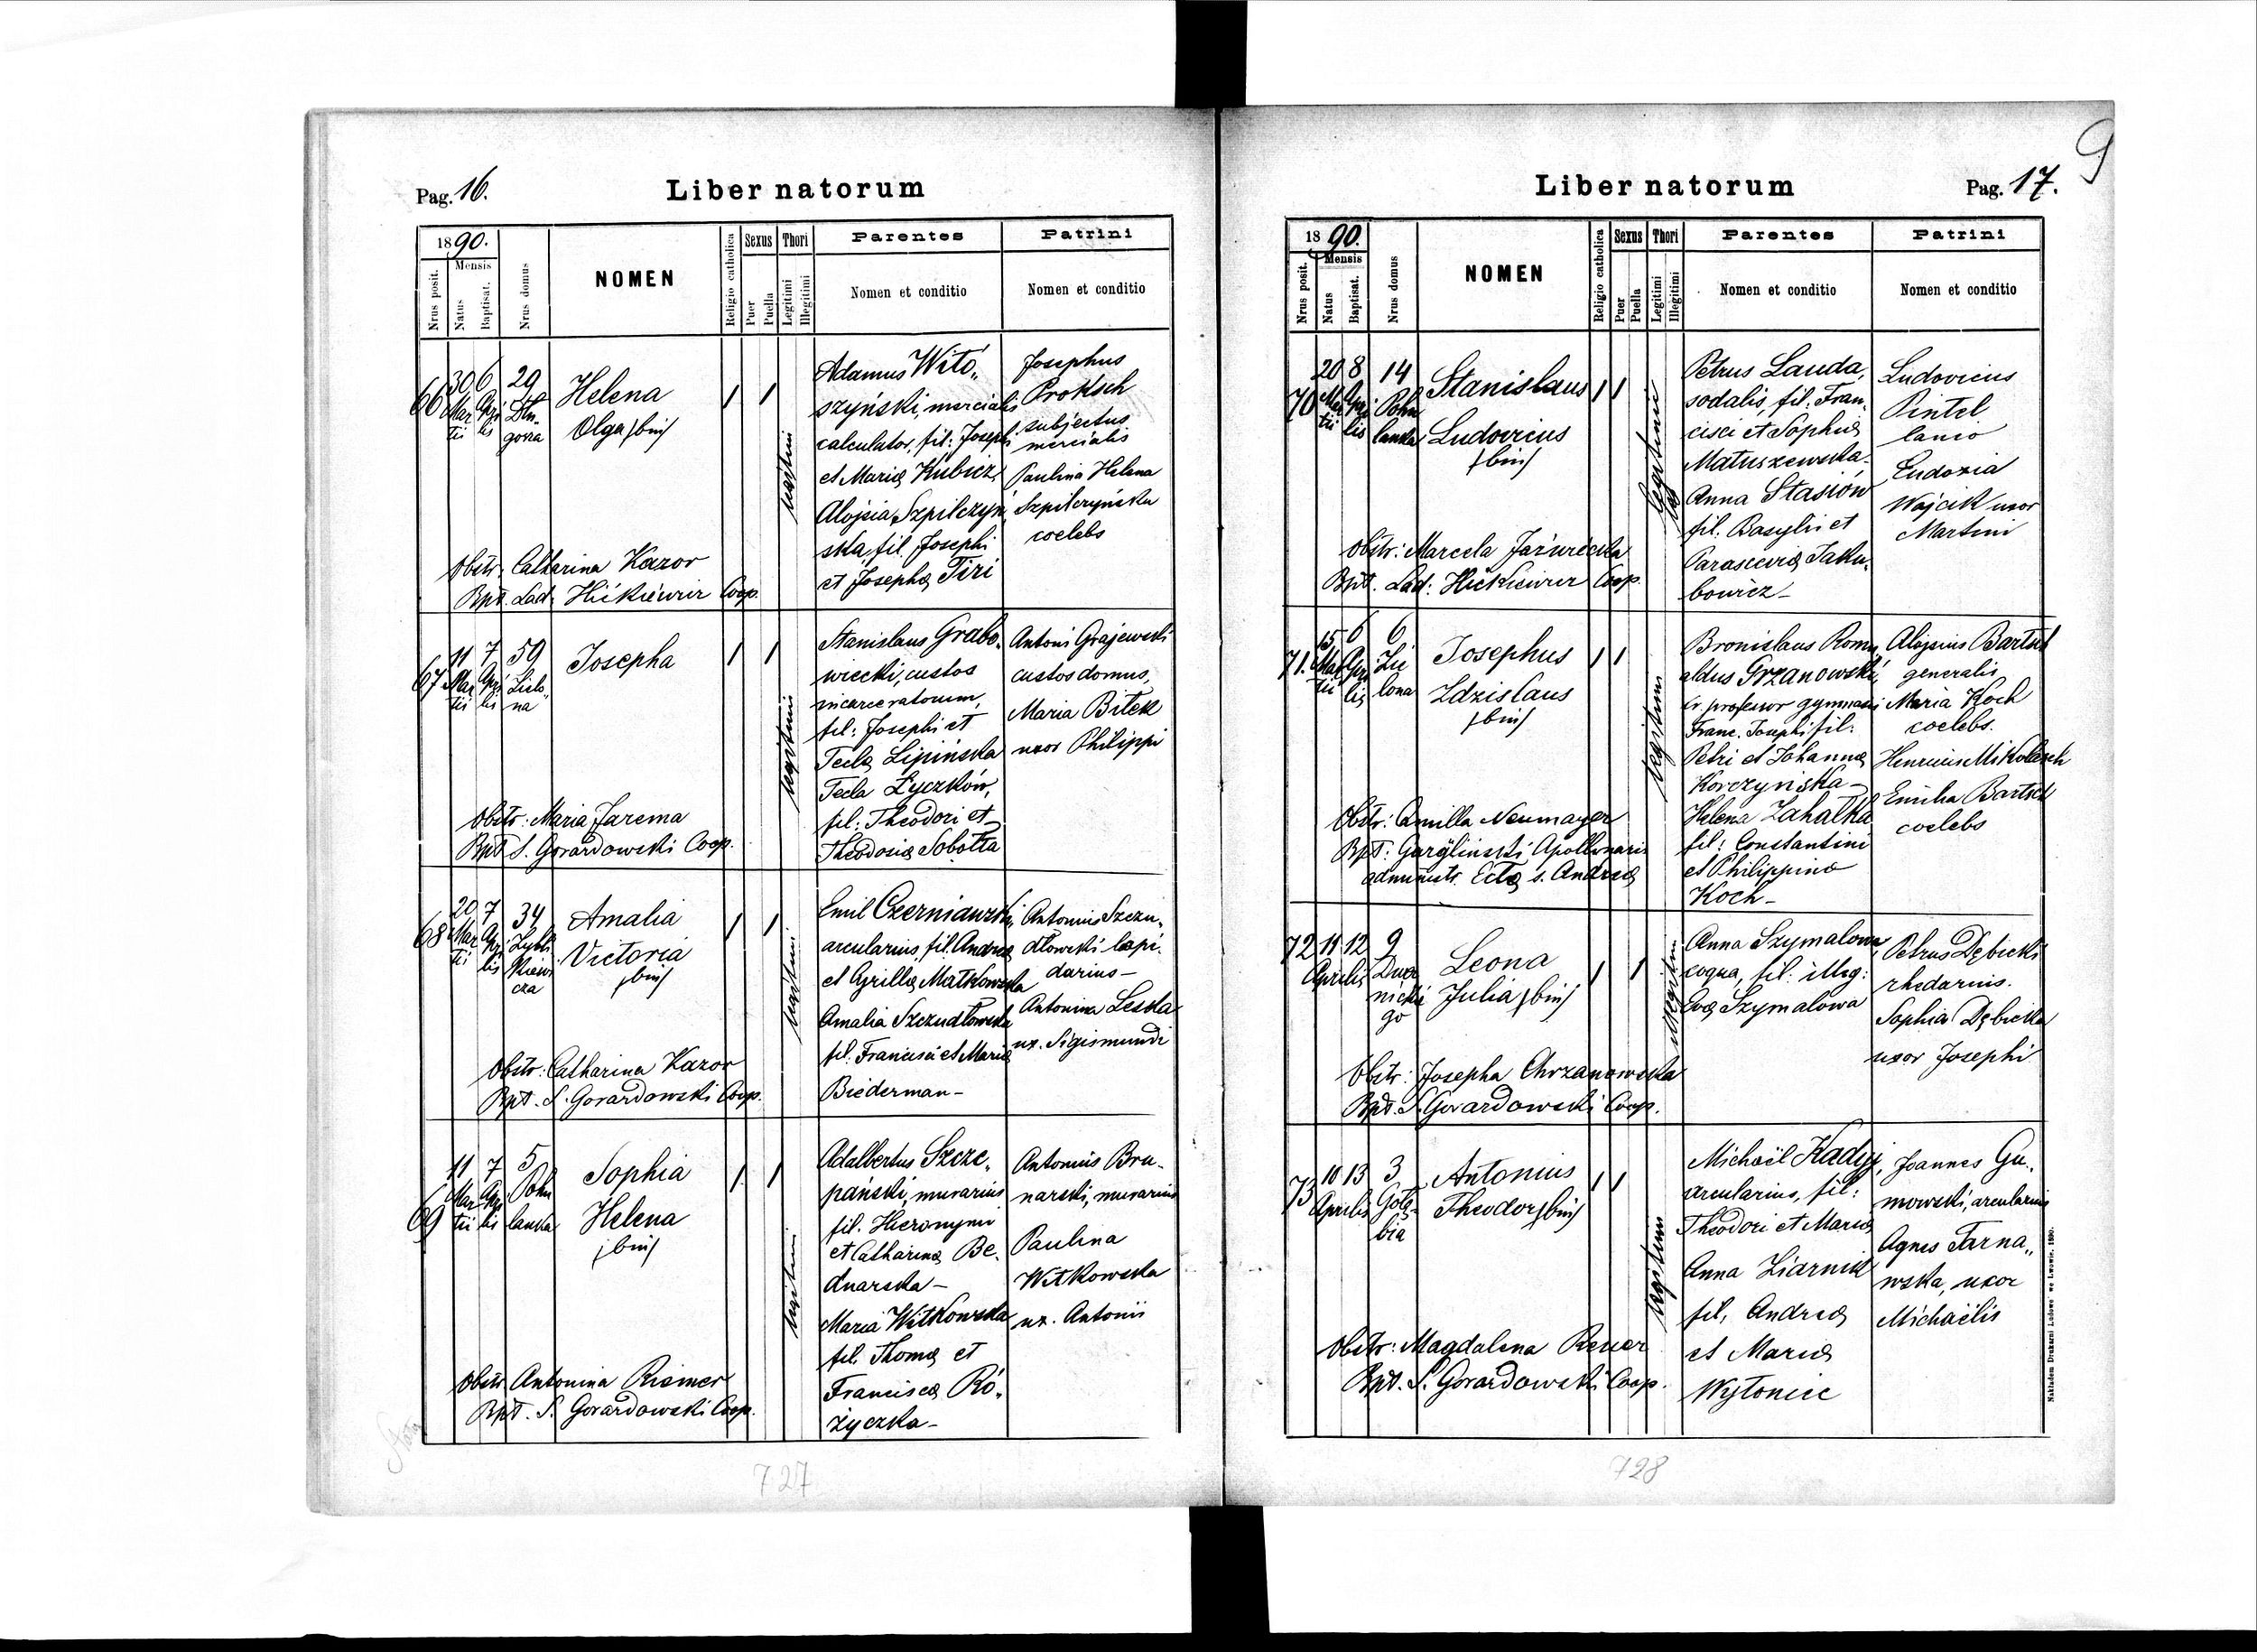 Pag. 16.
Liber natorum
1890.
Nrus posit.
Mensis
Natus
Baptisat.
Nrus domus
NOMEN
Religio catholica
Sexus
Puer
Puella
Thori
Legitimi
Illegitimi
Parentes
Nomen et conditio
Patrini
Nomen et conditio
66
30 Mar
tii
6 Apri
lis
29
Dłu-
gosza
Helena
Olga /bin/
Adamus Wito„
szyński, mercialis
calculator, fil: Josephi
et Maria Kubicz
Alojsia Szpilczyń„
ska, fil. Josephi
et Josepha Tiri
Josephus
Proksch
subjectus
mercialis
Paulina Helena
Szpilczyńska
coelebs
Obstr. Catharina Kazor
Bpt. Lad. Hićkiewicz Coop.
67
11 Mar
tii
7 Apri
lis
59
Zielo„
na
Josepha
Stanislaus Grabo„
wiecki, custos
incarceratorum,
fil: Josephi et
Tecla Lipińska
Tecla Łyczków,
fil: Theodori et
Theodosia Sobotta
Antoni Grajewski
custos domus,
Maria Bitek
uxor Philippi
Obstr: Maria Jarema
Bpt S. Gorardowski Coop.
68
20 Mar
tii
7 Apri
lis
34
Zybli
kiewi
cza
Amalia
Victoria
/bin/
Emil Czerniawski,
arcularius, fil. Andrea
et Cyrilla Matkowska
Amalia Szczudłowska
fil. Francisci et Maria
Biederman -
Antonius Szczu„
dłowski lapi-
darius -
Antonina Leska
ux. Sigismundi
Obstr: Catharina Kazor
Bpt. S. Gorardowski Coop.
69
11 Mar
tii
7 Apri
lis
5
Pohu
lanka
Sophia
Helena
/bin/
Adalbertus Szcze„
pański, murarius
fil. Hieronymi
et Catharina Be„
dnarska -
Maria Witkowska
fil. Thoma et
Francisca Ró„
życzka -
Antonius Bru-
narski, murarius
Paulina
Witkowska
ux. Antonii
Obstr Antonina Riemer
Bpt. S. Gorardowski Coop.
727
Liber natorum
Pag. 17.
9
1890.
Nrus posit.
Mensis
Natus
Baptisat.
Nrus domus
NOMEN
Religio catholica
Sexus
Puer
Puella
Thori
Legitimi
Illegitimi
Parentes
Nomen et conditio
Patrini
Nomen et conditio
70
20 Mar
tii
8 Apri
lis
14
Pohu
lanka
Stanislaus
Ludovicus
/bin/
legitimi
Petrus Lauda,
sodalis, fil. Fran„
cisci et Sophia
Matuszewska.
Anna Stasiów
fil. Basylii et
Parascevia Jaku„
bowicz -
Ludovicus
Pintel
lanio
Eudoxia
Wójcik uxor
Martini
Obstr: Marcela Jaźwiecka
Bpt. Lad: Hićkiewicz Coop.
71.
15 Mar
tii
6 Apri
lis
6
Zie
lona
Josephus
Zdzislaus
/bin/
Bronislaus Romu„
aldus Grzanowski,
professor gymnasii
Franc. Josephi fil:
Petri et Johanna
Korczyńska -
Helena Zahałka
fil: Constantini
et Philippina
Koch -
Alojsius Bartsch
generalis
Maria Koch
coelebs.
Henricus Mikolasch
Emilia Bartsch
coelebs
Obstr: Camilla Neumayer
Bpt: Apollinaris
administr. Ecta s. Andrea
72
11 12
Aprilis
9
Dwer
nickie
go
Leona
Julia /bin/
Anna Szymalowa,
coqua, fil. illeg:
Eva Szymalowa
Petrus Dębicki
rhedarius.
Sophia Dębicka
uxor Josephi
Obstr: Josepha Chrzanowska
Bpt. S. Gorardowski Coop.
73
10 13
Aprilis
3
Gołę-
bia
Antonius
Theodor /bin/
Michaël Kadyj,
arcularius, fil:
Theodori et Maria
Anna Ziarnik
fil. Andrea
et Maria
Wytonic
Joannes Gu„
mowski, arcularius
Agnes Tarna„
wska, uxor
Michaëlis
Obstr: Magdalena Reuer
Bpt. S. Gorardowski Coop.
Nakładem Drukarni Ludowej we Lwowie. 1890.
728